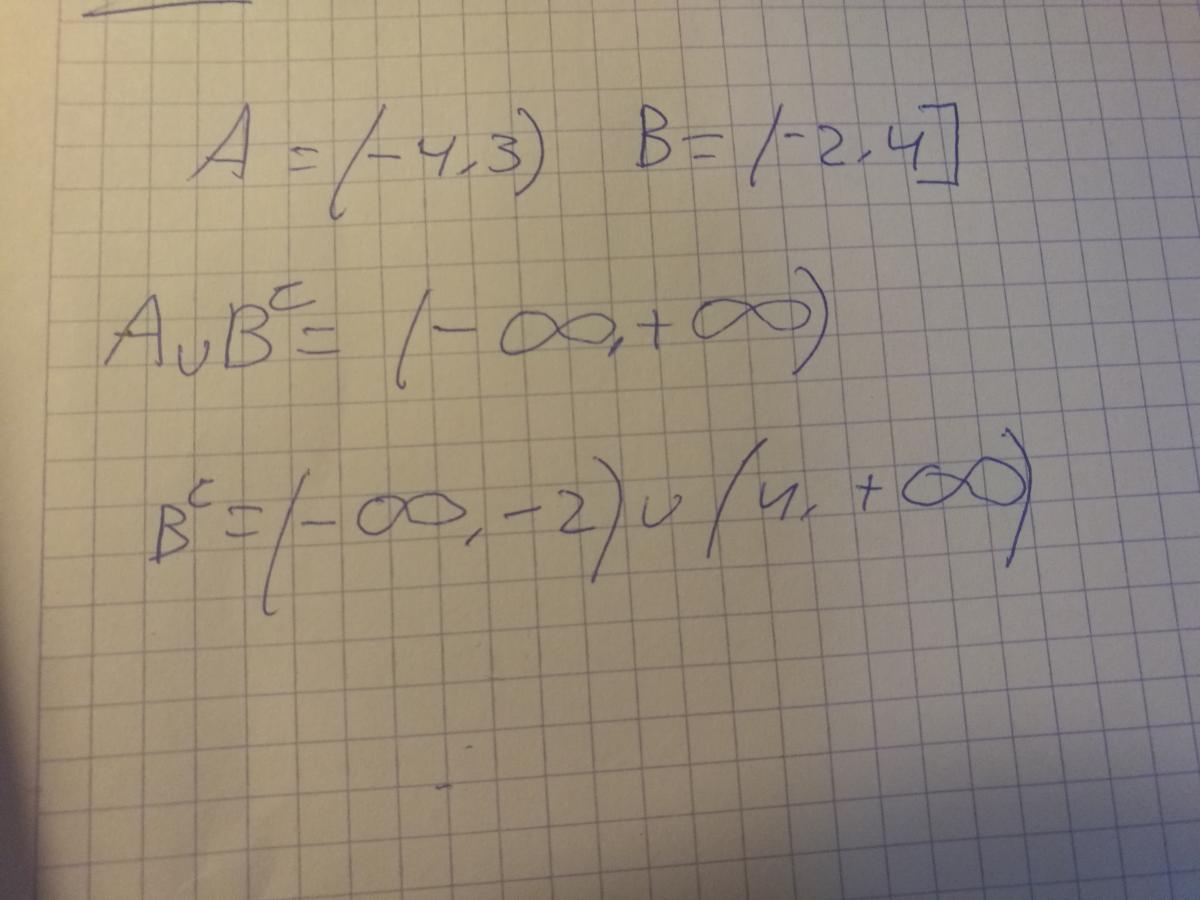 A = (-4,3) B = (-2,4]
A∪Bᶜ = (-∞,+∞)
Bᶜ = (-∞,-2) ∪ (4,+∞)